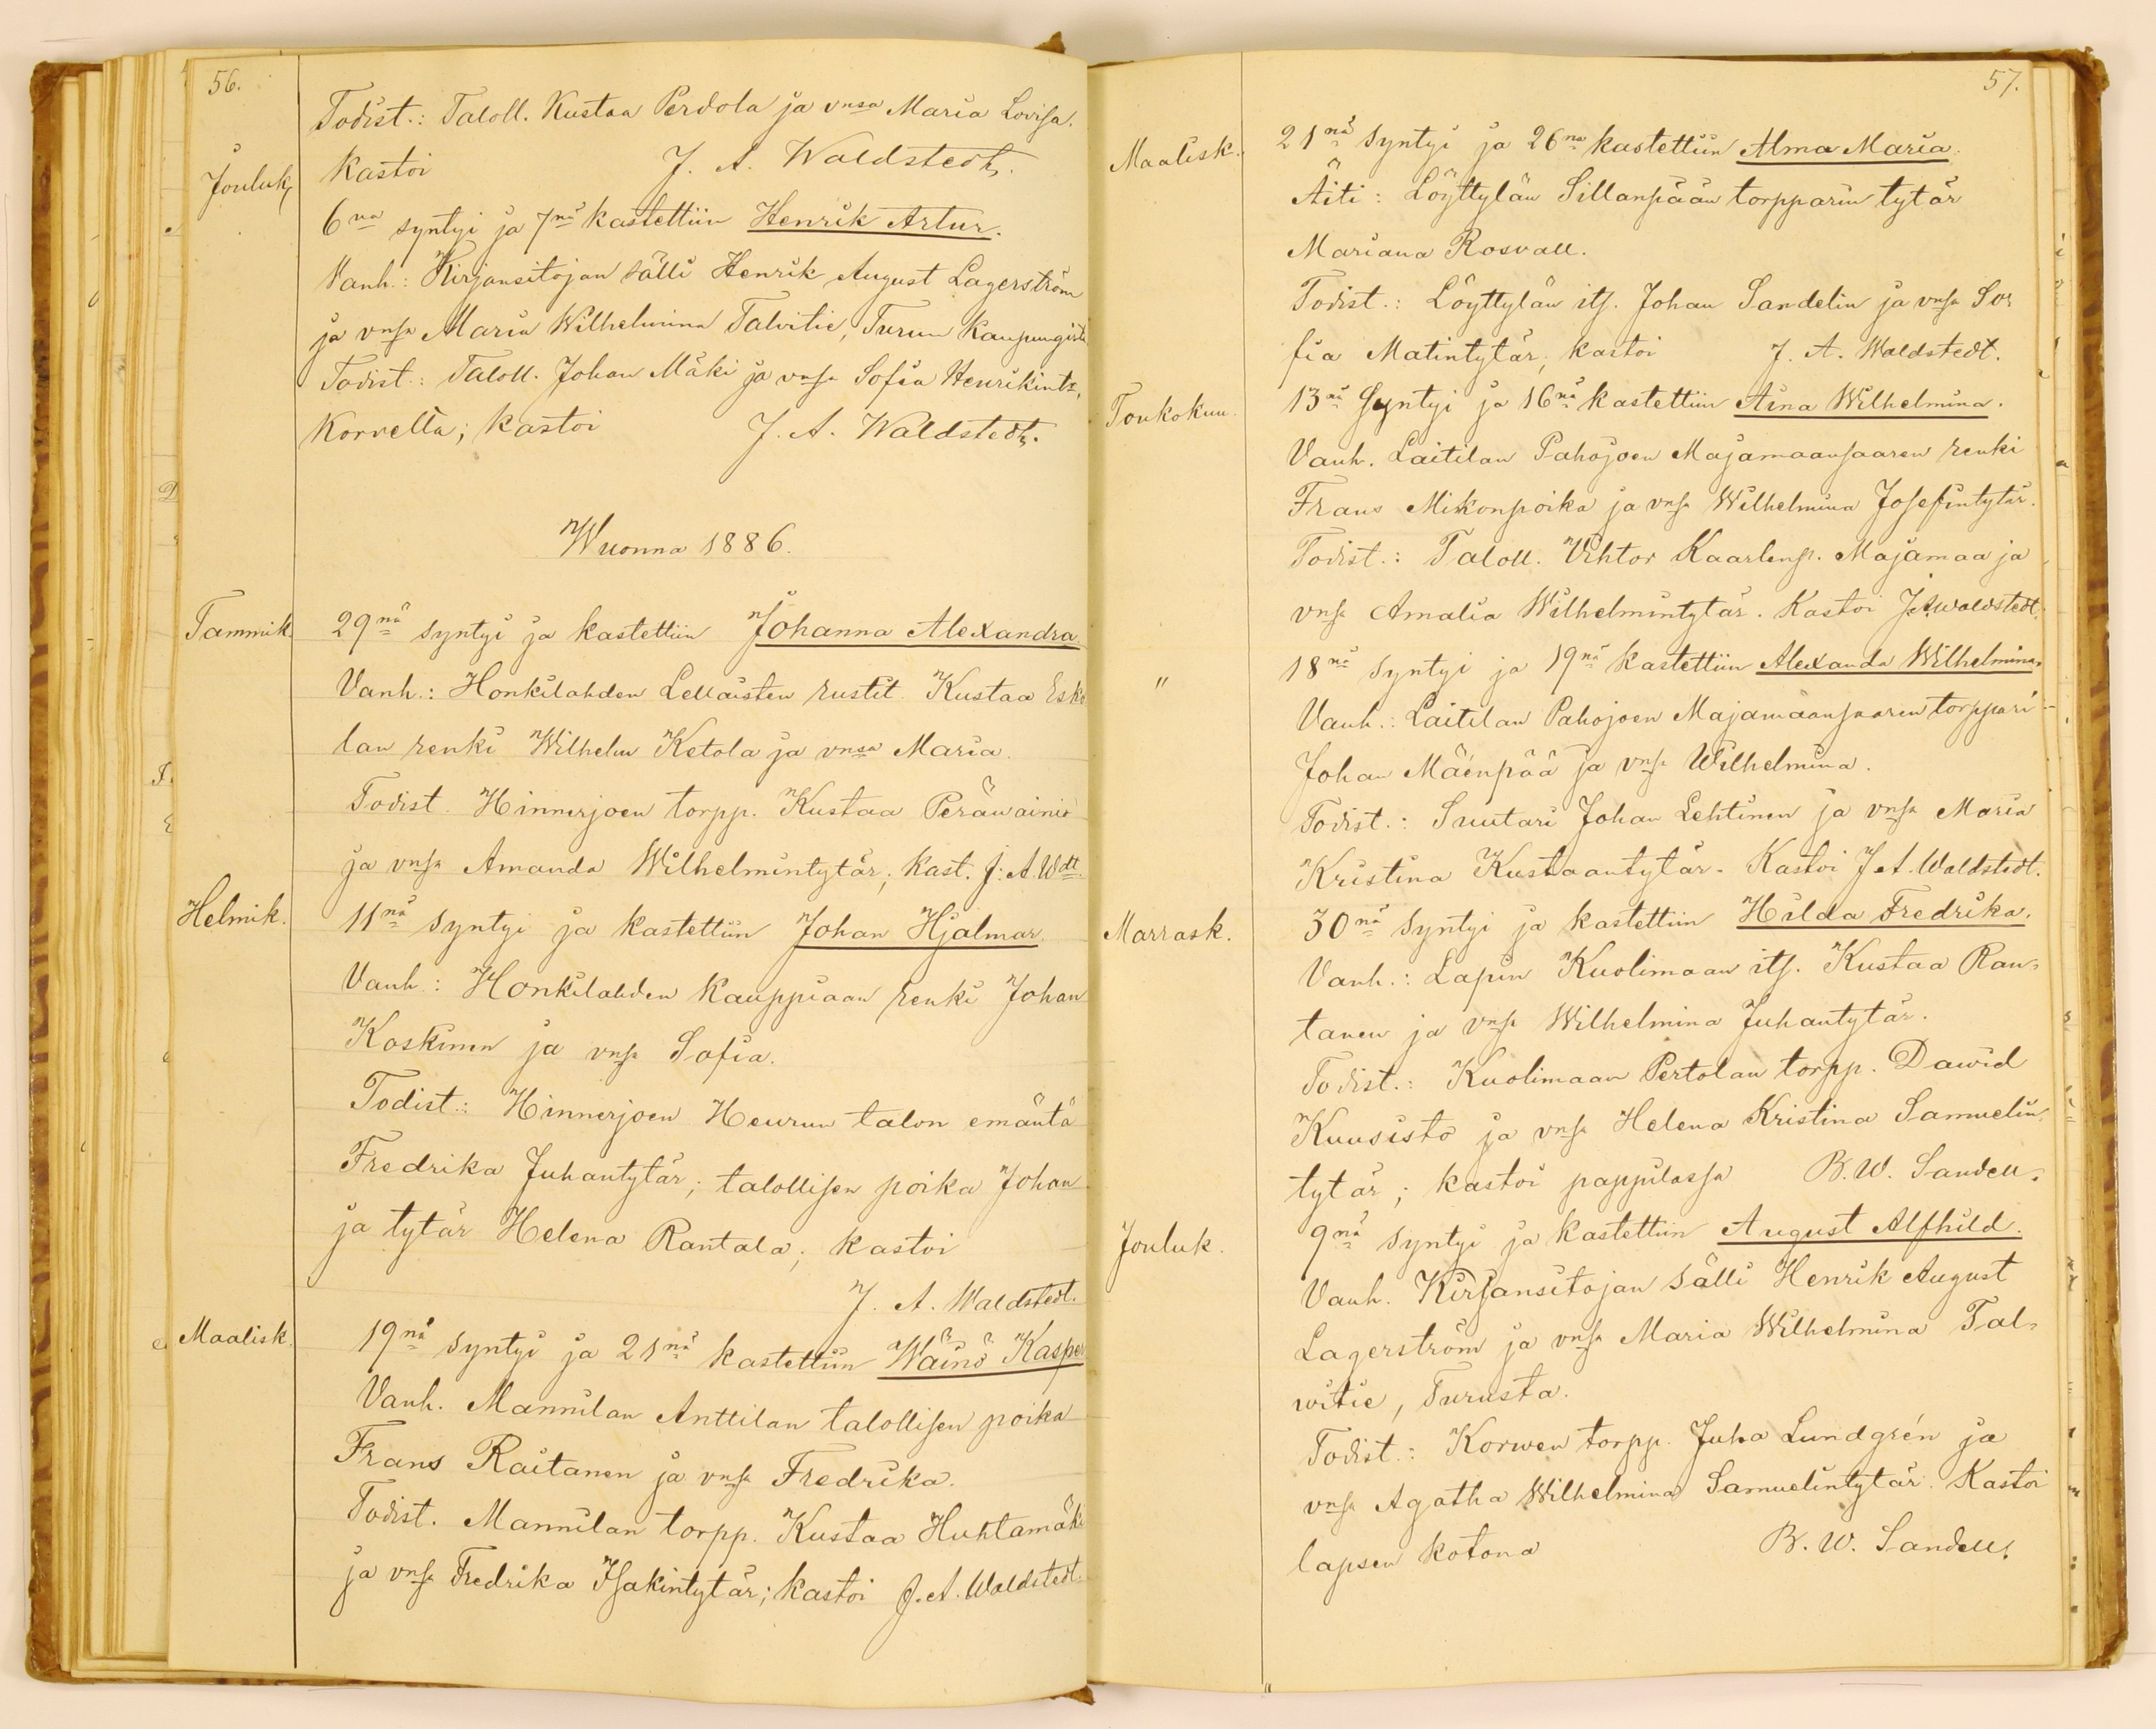 56.
Todist.: Taloll. Kustaa Perdola ja vnsa Maria Lovisa.
Jouluk. Kastoi J. A. Waldstedt.
6na syntyi ja 7nä kastettiin Henrik Artur.
Vanh.: Kirjansitojan sälli Henrik August Lagerström
ja vnsa Maria Wilhelmina Talvitie, Turun kaupungista
Todist.: Taloll. Johan Mäki ja vnsa Sofia Henrikint:,
Korvelta; kastoi J. A. Waldstedt.
Wuonna 1886.
Tammik. 29nä syntyi ja kastettiin Johanna Alexandra.
Vanh.: Honkilahden Lellaisten rustit. Kustaa Esko
lan renki Wilhelm Ketola ja vnsa Maria.
Todist. Hinnerjoen torpp. Kustaa Peräwainio
ja vnsa Amanda Wilhelmintytär; kast. J. A. Wdt.
Helmik. 11nä syntyi ja kastettiin Johan Hjalmar.
Vanh.: Honkilahden Kauppiaan renki Johan
Koskinen ja vnsa Sofia.
Todist.: Hinnerjoen Heurun talon emäntä
Fredrika Juhantytär; talollisen poika Johan
ja tytär Helena Rantala; kastoi
J. A. Waldstedt.
Maalisk. 19nä syntyi ja 21nä kastettiin Wäinö Kasper
Vanh. Mannilan Anttilan talollisen poika
Frans Raitanen ja vnsa Fredrika.
Todist. Mannilan torpp. Kustaa Huhtamäki
ja vnsa Fredrika Isakintytär; kastoi J. A. Waldstedt.
57.
Maalisk. 21nä syntyi ja 26na kastettiin Alma Maria.
Äiti: Löyttylän Sillanpään torpparin tytär
Mariana Rosvall.
Todist.: Löyttylän its. Johan Sandelin ja vnsa So-
fia Matintytär; kastoi J. A. Waldstedt.
Toukokuu. 13nä syntyi ja 16nä kastettiin Aina Wilhelmina.
Vanh. Laitilan Pahojoen Majamaansaaren renki
Frans Mikonpoika ja vnsa Wilhelmina Josefintytär.
Todist.: Taloll. Vihtor Kaarlenp. Majamaa ja
vnsa Amalia Wilhelmintytär. Kastoi J. A. Waldstedt.
" 18nä syntyi ja 19nä kastettiin Alexanda Wilhelmina.
Vanh.: Laitilan Pahojoen Majamaansaaren torppari
Johan Mäenpää ja vnsa Wilhelmina.
Todist.: Suutari Johan Lehtinen ja vnsa Maria
Kristina Kustaantytär. Kastoi J. A. Waldstedt.
Marrask. 30nä syntyi ja kastettiin Hilda Fredrika.
Vanh.: Lapin Kuolimaan its. Kustaa Ran-
tanen ja vnsa Wilhelmina Juhantytär.
Todist.: Kuolimaan Pertolan torpp. Dawid
Kuusisto ja vnsa Helena Kristina Samuelin-
tytär; kastoi pappilassa B. W. Sandell.
Jouluk. 9nä syntyi ja kastettiin August Alfhild.
Vanh. Kirjansitojan sälli Henrik August
Lagerström ja vnsa Maria Wilhelmina Tal-
witie, Turusta.
Todist.: Korwen torpp. Juha Lundgrén ja
vnsa Agatha Wilhelmina Samuelintytär. Kastoi
lapsen kotona B. W. Sandell.